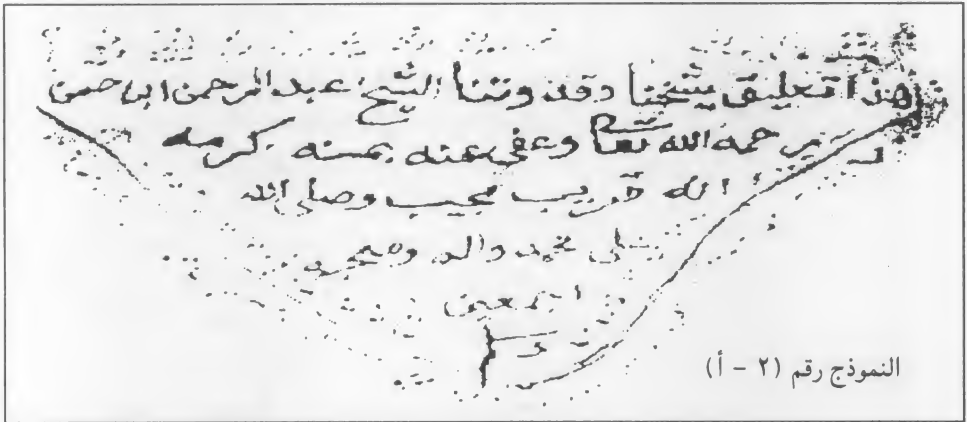 هذا تعليق شيخنا وقدوتنا الشيخ عبد الرحمن ابن حسن
رحمه الله تعا وعفى عنه بمنه كرمه
الله قريب مجيب وصلى الله
على محمد واله وصحبه
اجمعين
النموذج رقم (٢ - أ)